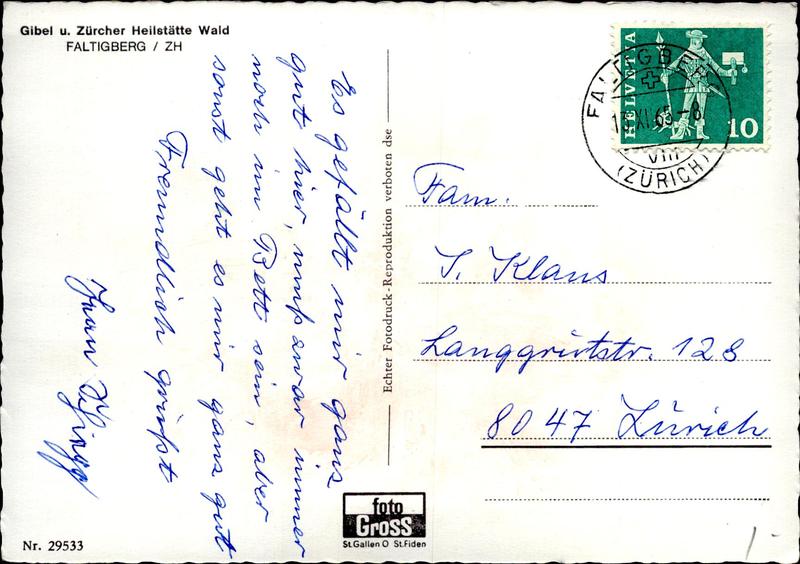 Gibel u. Zürcher Heilstätte Wald
FALTIGBERG / ZH
Es gefällt mir ganz
gut hier, muss zwar immer
noch im Bett sein, aber
sonst geht es mir ganz gut
Freundlich grüsst
Echter Fotodruck-Reproduktion verboten dse
HELVETIA
10
FALTIGBERG
13.XI.65-8
VIII
(ZÜRICH)
Fam.
S. Klaus
Langgrütstr. 128
8047 Zürich
foto
Gross
St.Gallen O St.Fiden
Nr. 29533